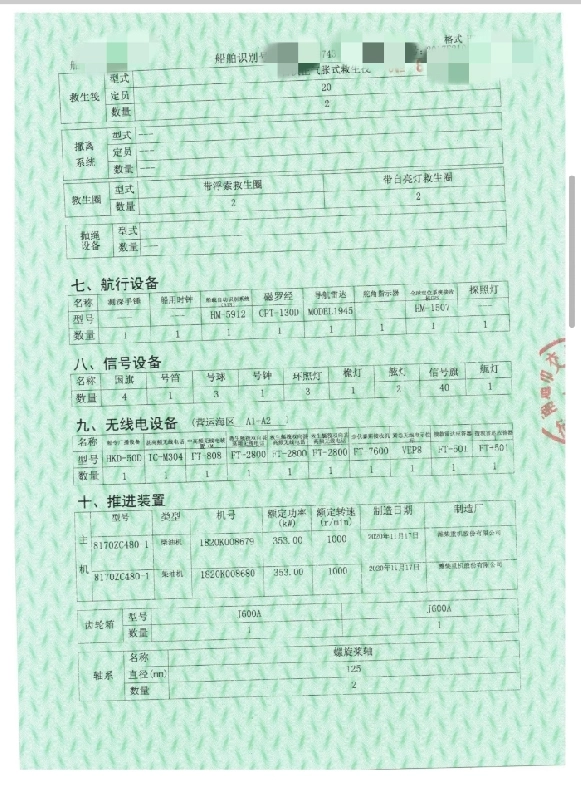 船舶识别号
格式
救生筏 型式 气胀式救生筏
定员 20
数量 2
撤离系统 型式 ——
定员 ——
数量 ——
救生圈 型式 带浮索救生圈 带自亮灯救生圈
数量 2 2
抛绳设备 型式
数量 ——
七、航行设备
名称 测深手锤 船用时钟 磁罗经 导航雷达 舵角指示器 探照灯
型号 —— —— HM-5912 CPT-130D MODEL1945 HM-1507
数量 1 1 1 1 1 1 1 1
八、信号设备
名称 国旗 号笛 号球 号钟 环照灯 桅灯 舷灯 信号旗 艉灯
数量 4 1 3 1 3 1 2 40 1
九、无线电设备 (营运海区 A1-A2 )
型号 HKD-50D IC-M304 FT-808 FT-2800 FT-2800 FT-2800 FT-7600 VEP8 FT-501 FT-501
数量 1 1 1 1 1 1 1 1 1 1
十、推进装置
主机 型号 类型 机号 额定功率(kW) 额定转速(r/min) 制造日期 制造厂
8170ZC480-1 柴油机 1820K008679 353.00 1000 2020年11月17日 潍柴重机股份有限公司
8170ZC480-1 柴油机 1820K008680 353.00 1000 2020年11月17日 潍柴重机股份有限公司
齿轮箱 型号 J600A J600A
数量 1 1
轴系 名称 螺旋桨轴
直径(mm) 125
数量 2